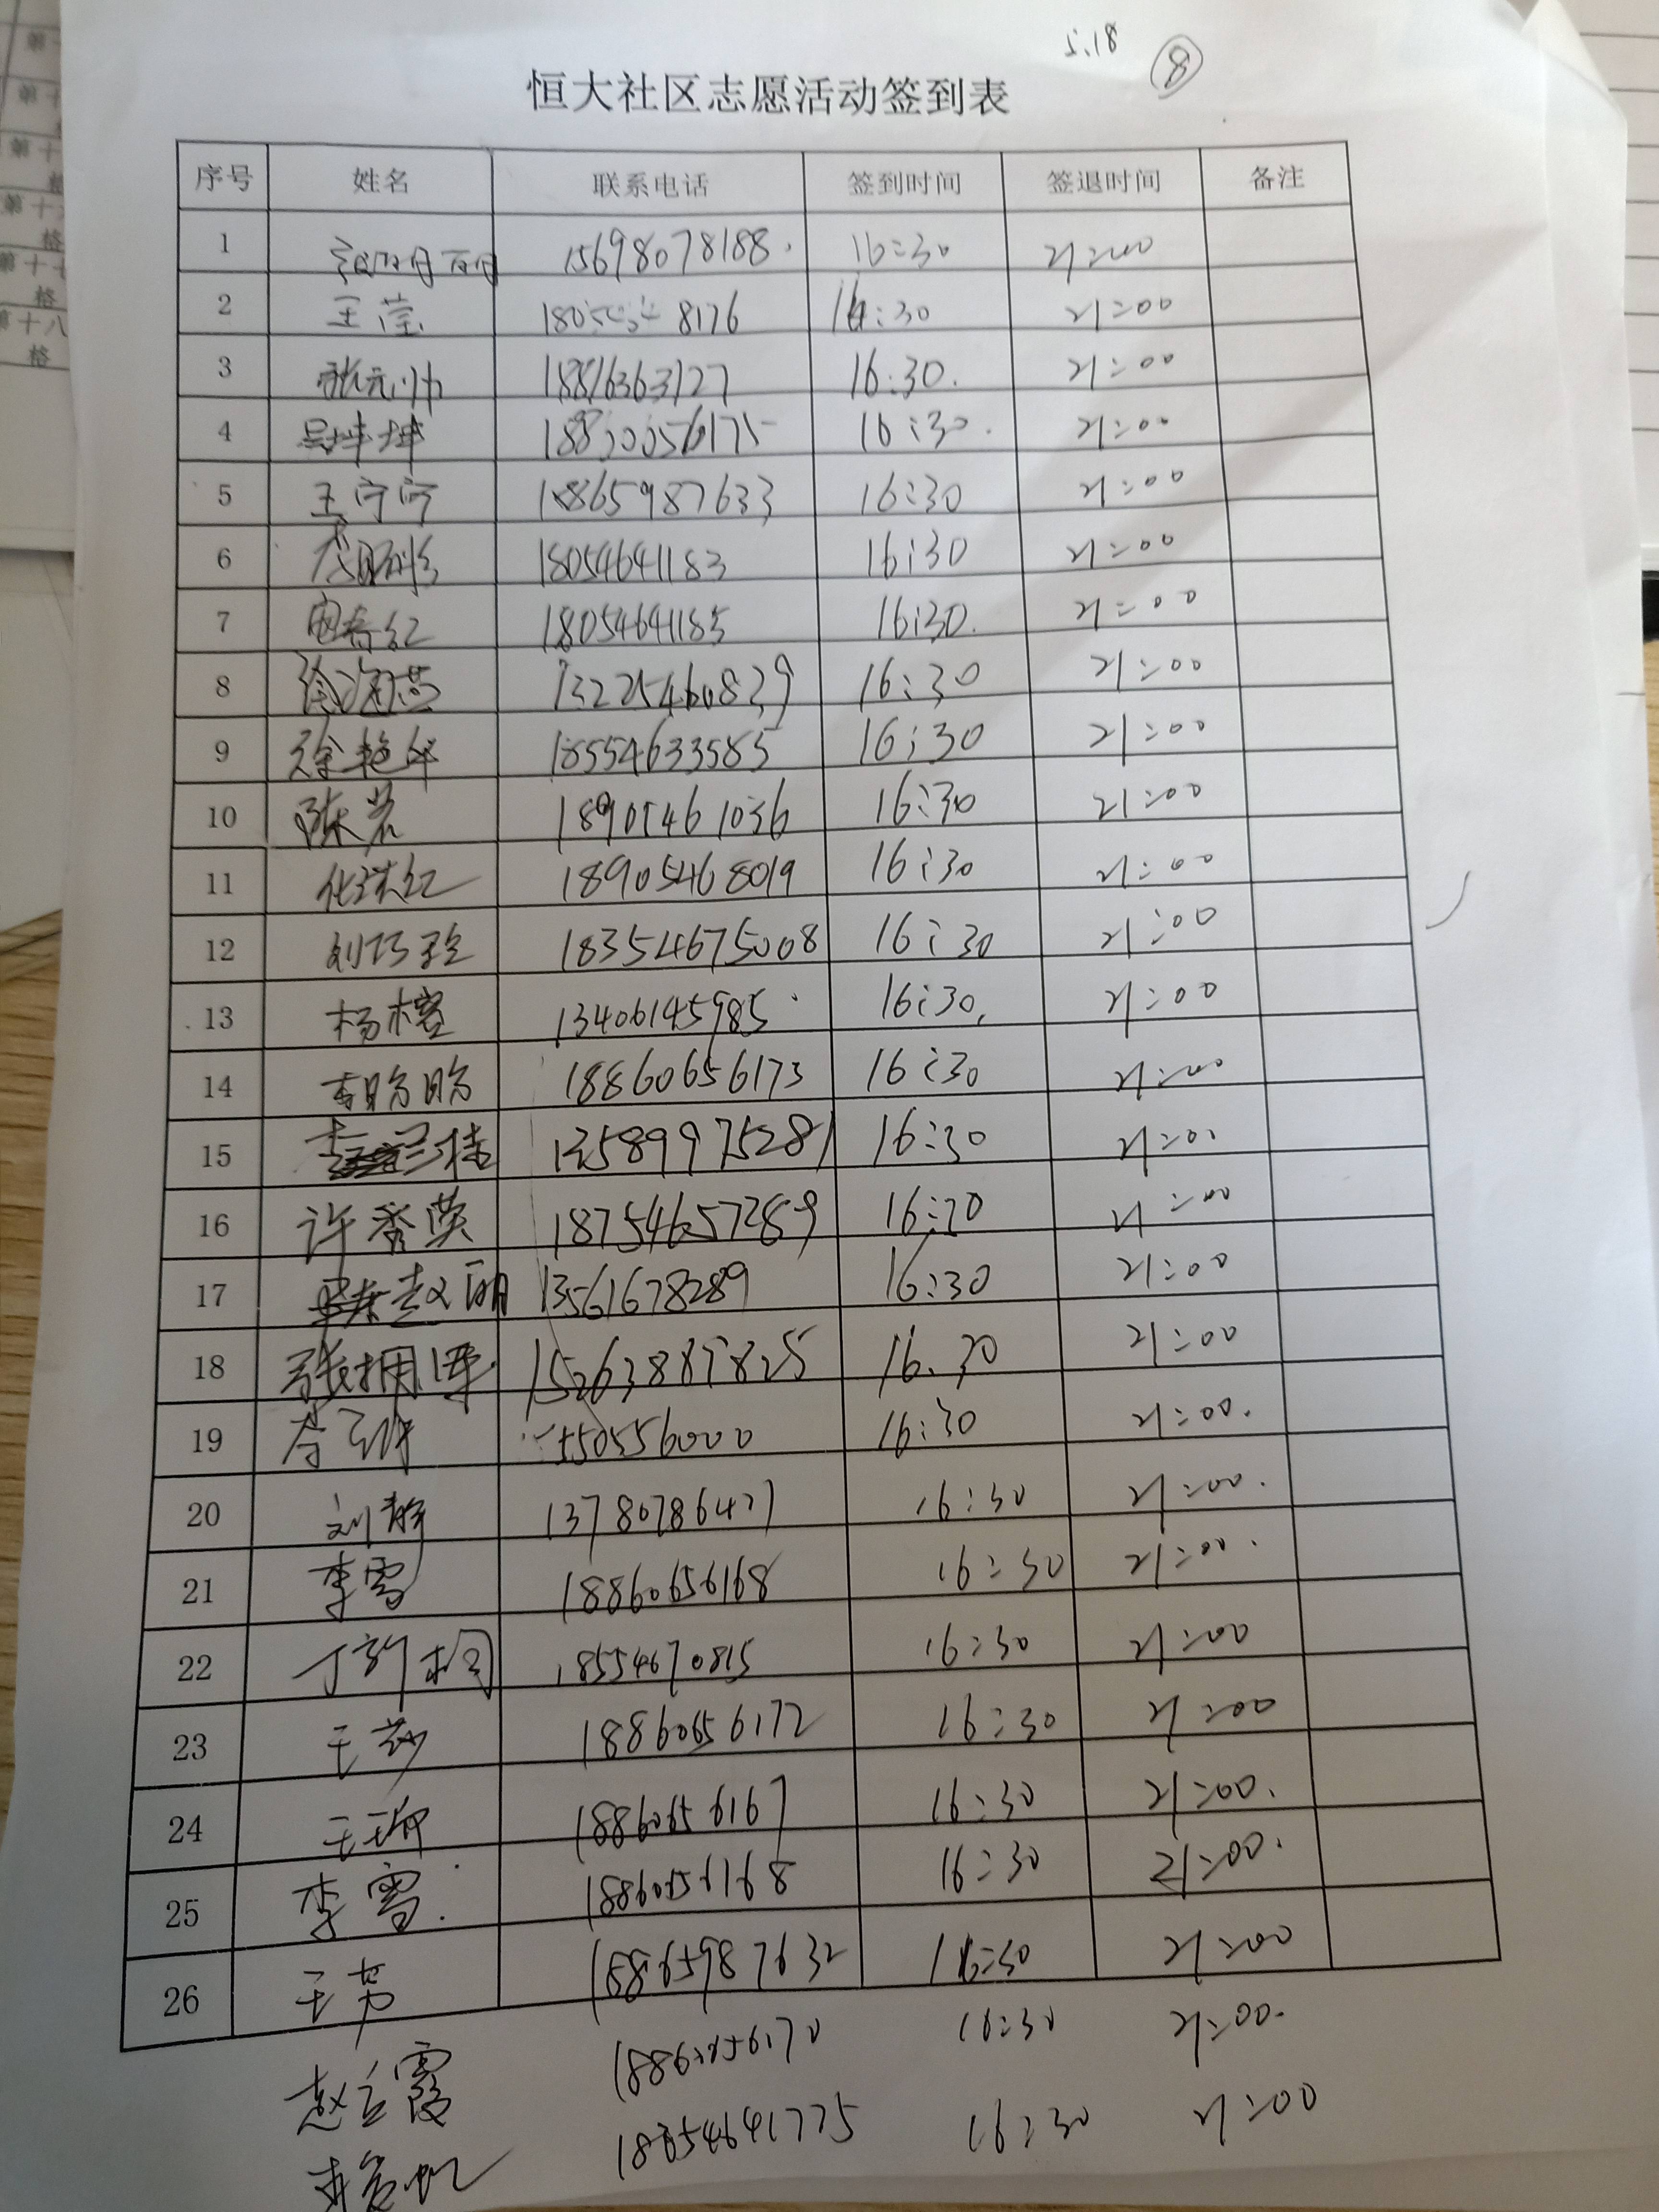 5.18 ⑧
恒大社区志愿活动签到表
序号 姓名 联系电话 签到时间 签退时间 备注
1 15698078188 16:30 21:00
2 王莹 8176 16:30 21:00
3 张元帅 18816363127 16:30 21:00
4 吴坤坤 16:30 21:00
5 王宁宁 18865987633 16:30 21:00
6 18054641183 16:30 21:00
7 18054641185 16:30 21:00
8 徐海燕 13225460829 16:30 21:00
9 徐艳华 18554633585 16:30 21:00
10 陈岩 18905461036 16:30 21:00
11 18905468019 16:30 21:00
12 刘巧玲 18354675008 16:30 21:00
13 杨榕 13406145985 16:30 21:00
14 李盼盼 18860656173 16:30 21:00
15 13589975281 16:30 21:00
16 许秀英 18754657289 16:30 21:00
17 赵丽 13561678289 16:30 21:00
18 16:30 21:00
19 16:30 21:00
20 刘静 13780786427 16:30 21:00
21 李雪 18860656168 16:30 21:00
22 丁新桐 18554670815 16:30 21:00
23 18860656172 16:30 21:00
24 18860656167 16:30 21:00
25 李雪 18860656168 16:30 21:00
26 王芳 18865987632 16:30 21:00
赵立霞 18860656170 16:30 21:00
18054641775 16:30 21:00
第十
格
第十
格
第十七
格
第十八
格